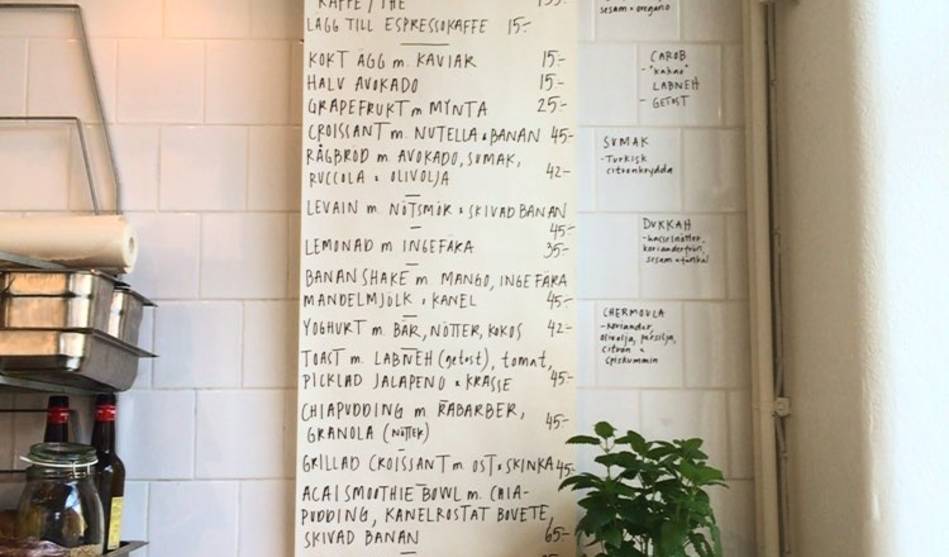 KAFFE / THE
LÄGG TILL ESPRESSOKAFFE 15:-
KOKT ÄGG m. KAVIAR 15:-
HALV AVOKADO 15:-
GRAPEFRUKT m MYNTA 25:-
CROISSANT m. NUTELLA & BANAN 45:-
RÅGBRÖD m. AVOKADO, SUMAK,
RUCCOLA & OLIVOLJA 42:-
LEVAIN m. NÖTSMÖR & SKIVAD BANAN
45:-
LEMONAD m INGEFÄRA 35:-
BANANSHAKE m. MANGO, INGEFÄRA
MANDELMJÖLK & KANEL 45:-
YOGHURT m. BÄR, NÖTTER, KOKOS 42:-
TOAST m. LABNEH (getost), tomat,
PICKLAD JALAPENO & KRASSE 45:-
CHIAPUDDING m RABARBER,
GRANOLA (nötter) 45:-
GRILLAD CROISSANT m. OST & SKINKA 45:-
ACAI SMOOTHIE BOWL m. CHIA-
PUDDING, KANELROSTAT BOVETE,
SKIVAD BANAN 65:-
sesam & oregano
CAROB
- "kakao"
LABNEH
- GETOST
SUMAK
- Turkisk
citronkrydda
DUKKAH
- hasselnötter,
korianderfrön,
sesam &
CHERMOULA
- koriander,
olivolja, persilja,
citron &
spiskummin